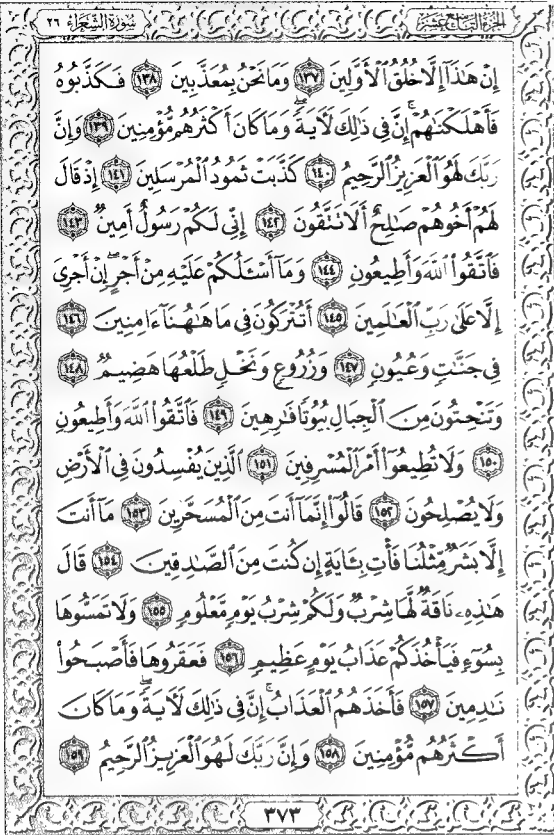 الجزء التاسع عشر
سورة الشعراء ٢٦
إِنْ هَٰذَآ إِلَّا خُلُقُ ٱلْأَوَّلِينَ ١٣٧ وَمَا نَحْنُ بِمُعَذَّبِينَ ١٣٨ فَكَذَّبُوهُ
فَأَهْلَكْنَٰهُمْ ۗ إِنَّ فِى ذَٰلِكَ لَـَٔايَةً ۖ وَمَا كَانَ أَكْثَرُهُم مُّؤْمِنِينَ ١٣٩ وَإِنَّ
رَبَّكَ لَهُوَ ٱلْعَزِيزُ ٱلرَّحِيمُ ١٤٠ كَذَّبَتْ ثَمُودُ ٱلْمُرْسَلِينَ ١٤١ إِذْ قَالَ
لَهُمْ أَخُوهُمْ صَٰلِحٌ أَلَا تَتَّقُونَ ١٤٢ إِنِّى لَكُمْ رَسُولٌ أَمِينٌ ١٤٣
فَٱتَّقُوا۟ ٱللَّهَ وَأَطِيعُونِ ١٤٤ وَمَآ أَسْـَٔلُكُمْ عَلَيْهِ مِنْ أَجْرٍ ۖ إِنْ أَجْرِىَ
إِلَّا عَلَىٰ رَبِّ ٱلْعَٰلَمِينَ ١٤٥ أَتُتْرَكُونَ فِى مَا هَٰهُنَآ ءَامِنِينَ ١٤٦
فِى جَنَّٰتٍ وَعُيُونٍ ١٤٧ وَزُرُوعٍ وَنَخْلٍ طَلْعُهَا هَضِيمٌ ١٤٨
وَتَنْحِتُونَ مِنَ ٱلْجِبَالِ بُيُوتًا فَٰرِهِينَ ١٤٩ فَٱتَّقُوا۟ ٱللَّهَ وَأَطِيعُونِ
١٥٠ وَلَا تُطِيعُوٓا۟ أَمْرَ ٱلْمُسْرِفِينَ ١٥١ ٱلَّذِينَ يُفْسِدُونَ فِى ٱلْأَرْضِ
وَلَا يُصْلِحُونَ ١٥٢ قَالُوٓا۟ إِنَّمَآ أَنتَ مِنَ ٱلْمُسَحَّرِينَ ١٥٣ مَآ أَنتَ
إِلَّا بَشَرٌ مِّثْلُنَا فَأْتِ بِـَٔايَةٍ إِن كُنتَ مِنَ ٱلصَّٰدِقِينَ ١٥٤ قَالَ
هَٰذِهِۦ نَاقَةٌ لَّهَا شِرْبٌ وَلَكُمْ شِرْبُ يَوْمٍ مَّعْلُومٍ ١٥٥ وَلَا تَمَسُّوهَا
بِسُوٓءٍ فَيَأْخُذَكُمْ عَذَابُ يَوْمٍ عَظِيمٍ ١٥٦ فَعَقَرُوهَا فَأَصْبَحُوا۟
نَٰدِمِينَ ١٥٧ فَأَخَذَهُمُ ٱلْعَذَابُ ۗ إِنَّ فِى ذَٰلِكَ لَـَٔايَةً ۖ وَمَا كَانَ
أَكْثَرُهُم مُّؤْمِنِينَ ١٥٨ وَإِنَّ رَبَّكَ لَهُوَ ٱلْعَزِيزُ ٱلرَّحِيمُ ١٥٩
٣٧٣